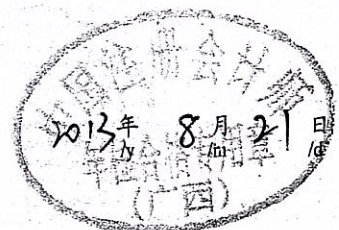 中国注册会计师
2013年 8月 21日
/y /m /d
年检合格专用章
(广西)